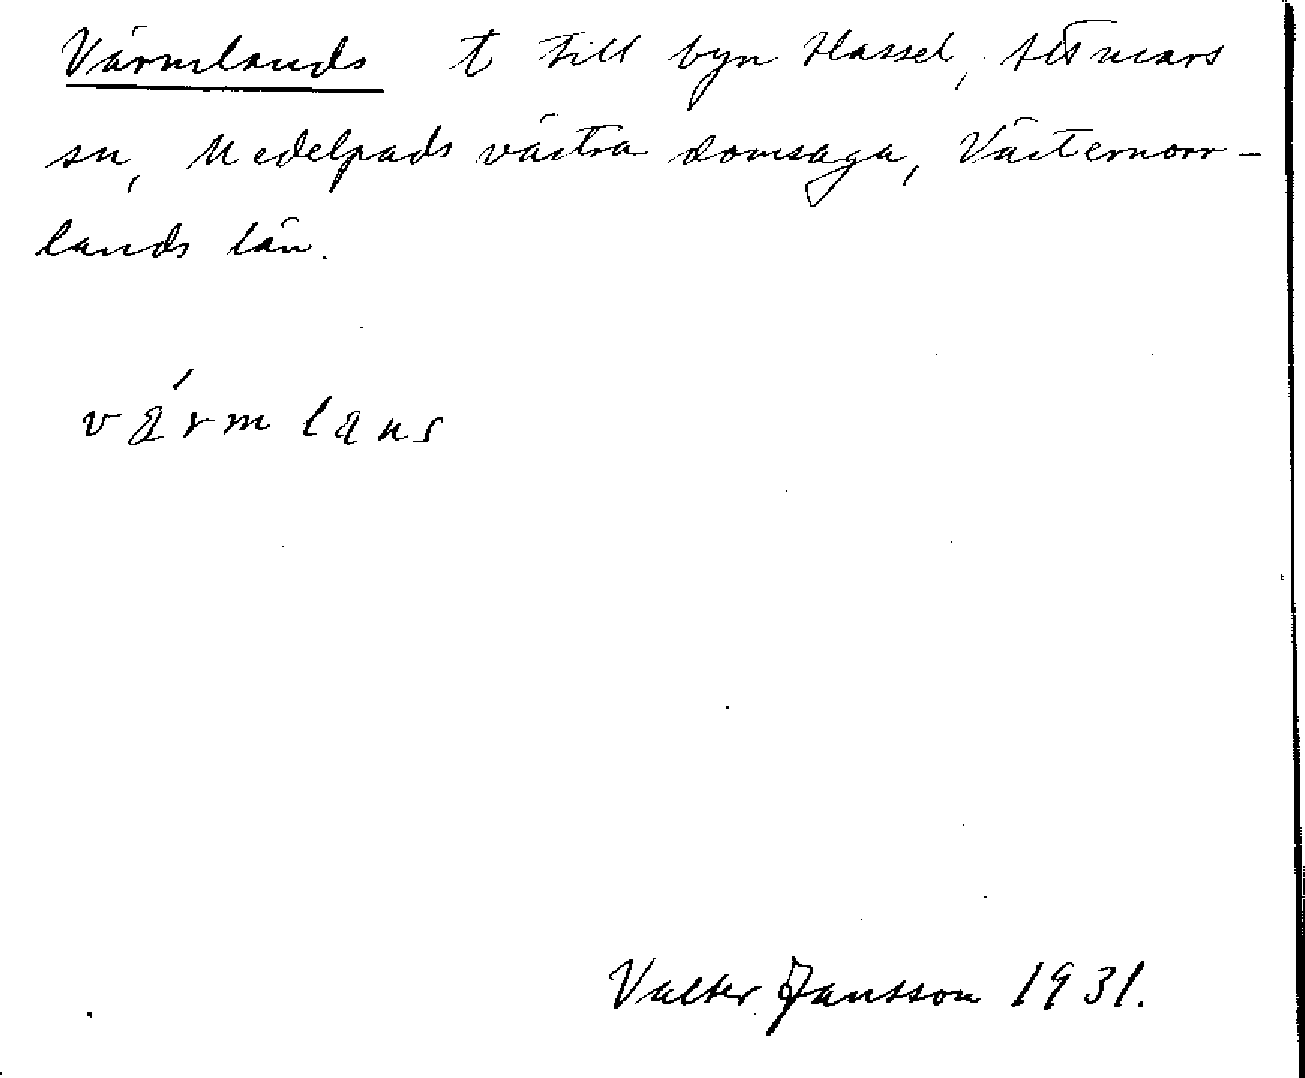 Värmlands t till byn Hassel, Attmars
sn, Medelpads västra domsaga, Västernorr-
lands län.
värmlans
Valter Jansson 1931.